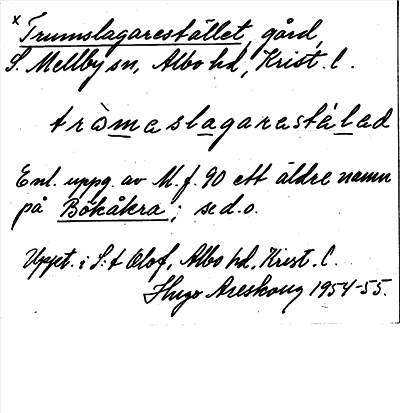 x Trumslagarestället, gård,
S. Mellby sn, Albo hd, Krist. l.
tròmaslagarastálad
Enl. uppg. av M. f. 90 ett äldre namn
på Bökåkra; se d.o.
Uppt. i S:t Olof, Albo hd, Krist. l.
Hugo Areskoug 1954-55.